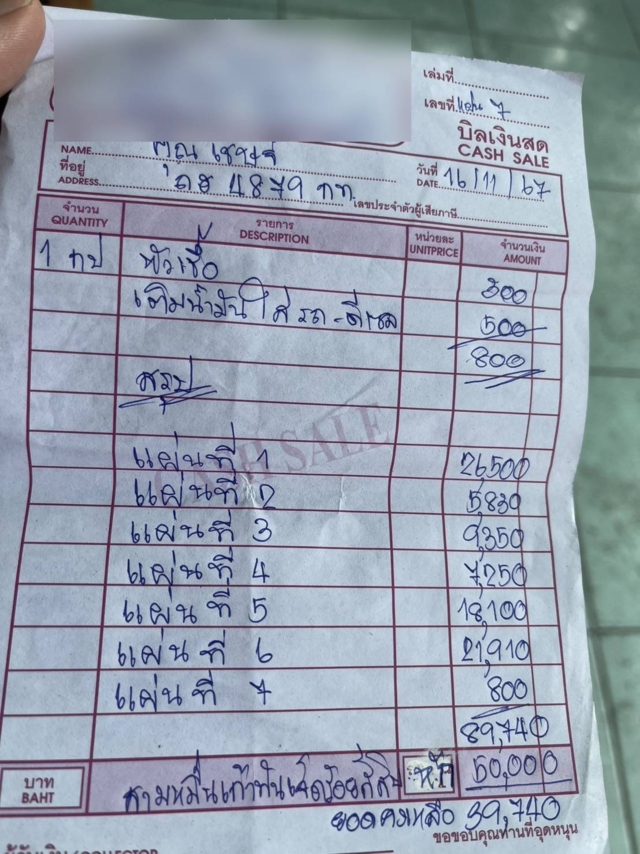 เล่มที่
เลขที่ แผ่น 7
บิลเงินสด
CASH SALE
NAME คุณ
ที่อยู่
ADDRESS 4879 กท
วันที่
DATE 16/11/67
เลขประจำตัวผู้เสียภาษี
จำนวน QUANTITY รายการ DESCRIPTION หน่วยละ UNITPRICE จำนวนเงิน AMOUNT
1 300
เติมน้ำมันใส่รถ-ดีเซล 500
800
สรุป
CASH SALE
แผ่นที่ 1 26,500
แผ่นที่ 2 5,830
แผ่นที่ 3 9,350
แผ่นที่ 4 7,250
แผ่นที่ 5 18,100
แผ่นที่ 6 21,910
แผ่นที่ 7 800
89,740
บาท BAHT สามหมื่นเก้าพันเจ็ดร้อยสี่สิบ หัก 50,000
ยอดคงเหลือ 39,740
ขอขอบคุณท่านที่อุดหนุน